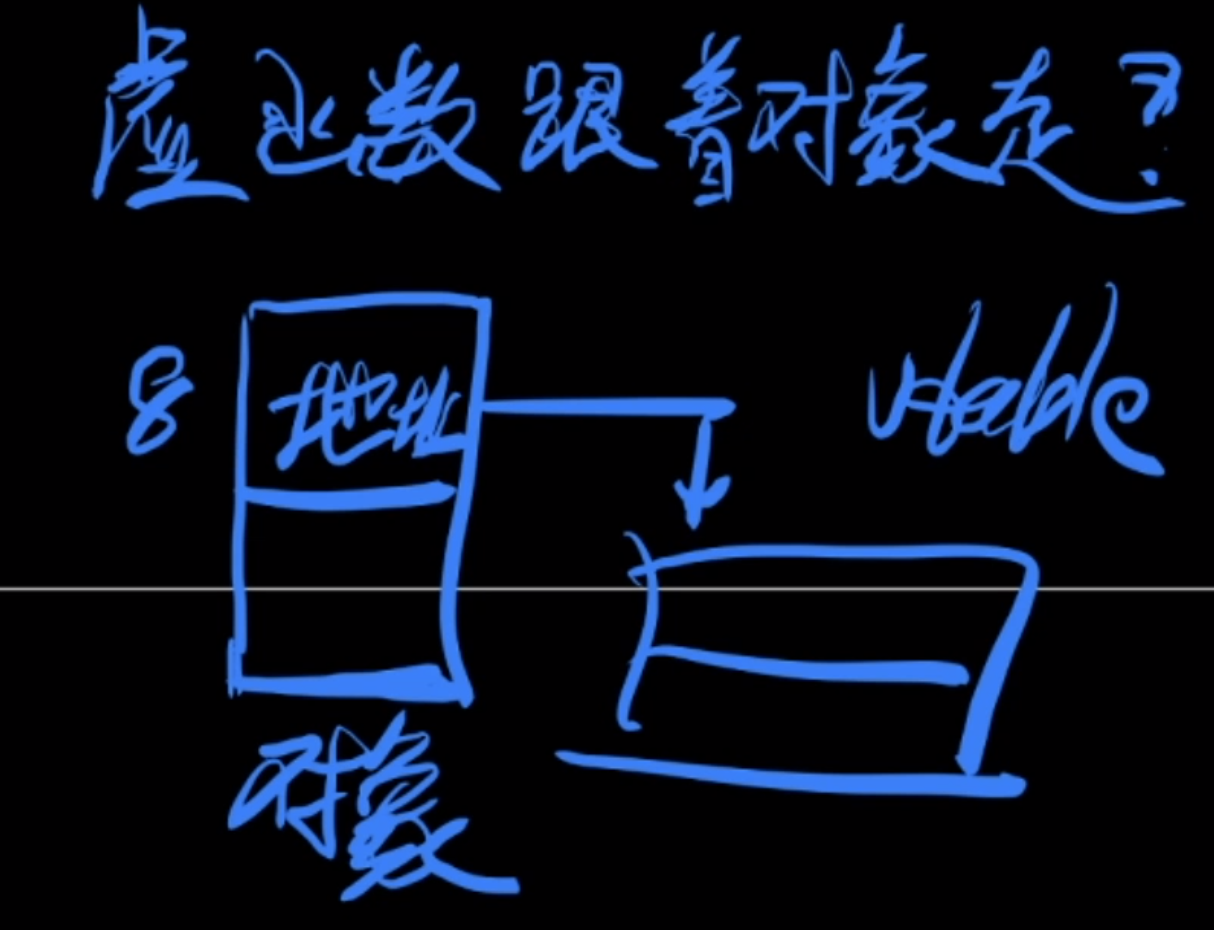 虚函数跟着对象走?
8
地址
vtable
对象